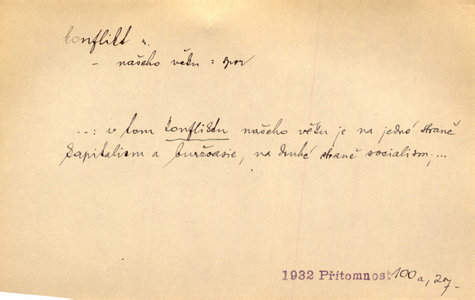 konflikt n.
– našeho věku :
...: v tom konfliktu našeho věku je na jedné straně
kapitalism a buržoasie, na druhé straně socialism, ...
1932 Přítomnost 100a, 27.